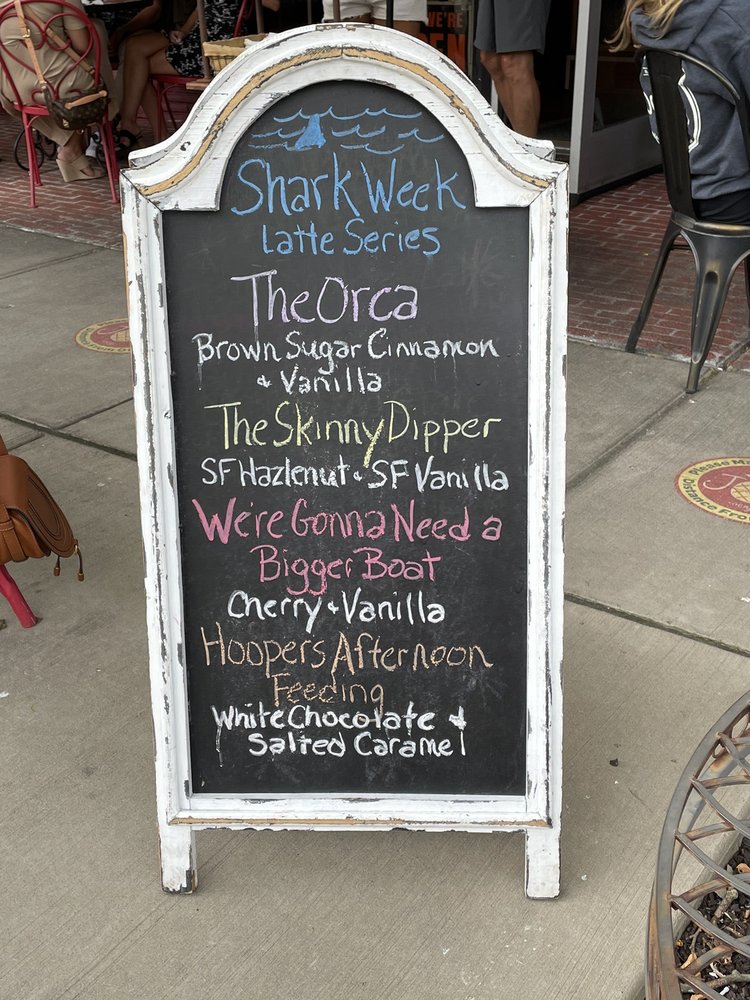 WE'RE
Shark Week
Latte Series
The Orca
Brown Sugar Cinnamon
& Vanilla
The Skinny Dipper
SF Hazlenut & SF Vanilla
We're Gonna Need a
Bigger Boat
Cherry & Vanilla
Hoopers Afternoon
Feeding
White Chocolate &
Salted Caramel
Please M